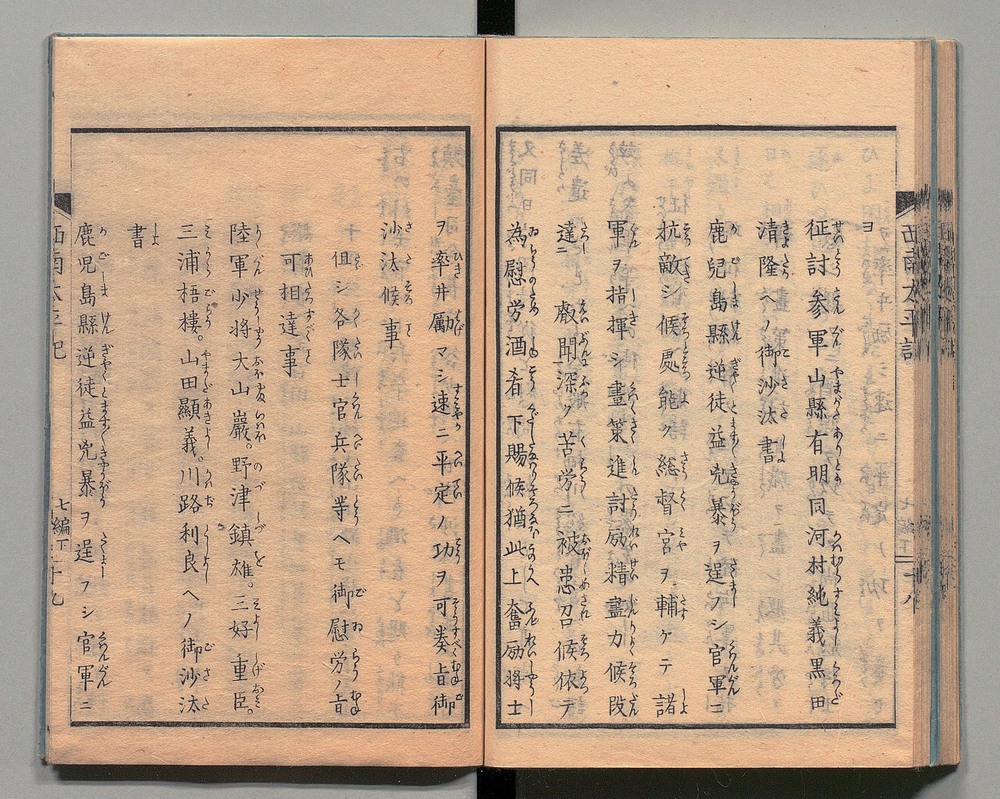 ヨ
征討参軍山縣有明同河村純義黒田
清隆ヘノ御沙汰書
鹿兒島縣逆徒益兇暴ヲ逞フシ官軍ニ
抗敵シ候處能ク総督宮ヲ輔ケテ諸
軍ヲ指揮シ畫策進討励精盡力候段
達 叡聞深ク苦労ニ被思召候依テ
為慰労酒肴下賜候猶此上奮励将士
ヲ率井勵マシ速ニ平定ノ功ヲ可奏旨御
沙汰候事
但シ各隊士官兵隊等ヘモ御慰労ノ旨
可相達事
陸軍少将大山巖。野津鎮雄。三好重臣。
三浦梧樓。山田顯義。川路利良ヘノ御沙汰
書
鹿児島縣逆徒益兇暴ヲ逞フシ官軍ニ
西南太平記
七編下
二十九